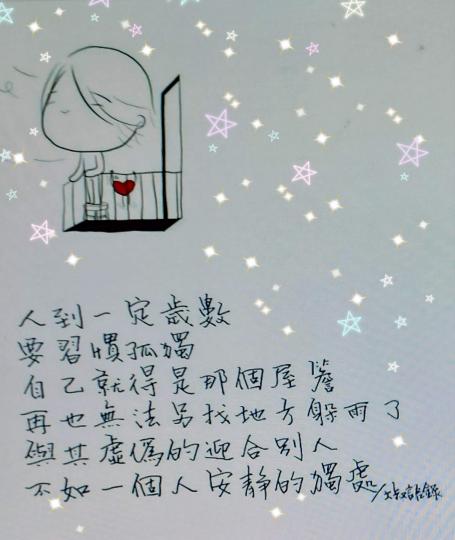 人到一定歲數
要習慣孤獨
自己就得是那個屋簷
再也無法另找地方躲雨了
與其虛偽的迎合別人
不如一個人安靜的獨處